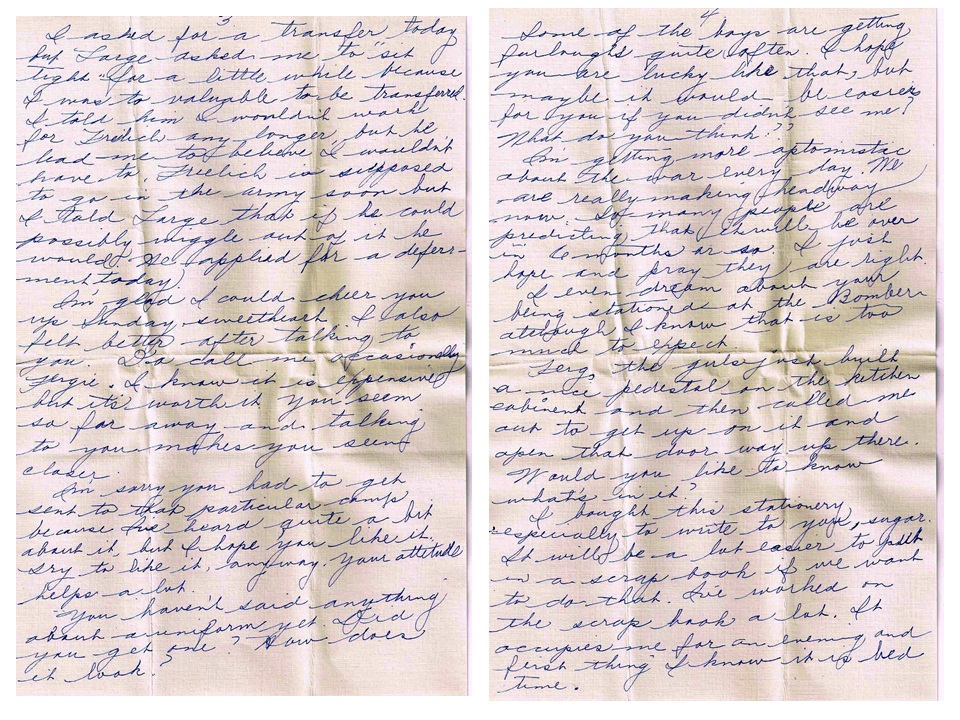 3
I asked for a transfer today
but Large asked me to "sit
tight" for a little while because
I was to valuable to be transferred.
I told him I wouldn't work
for Freilich any longer, but he
lead me to believe I wouldn't
have to. Freilich is supposed
to go in the army soon but
I told Large that if he could
possibly wiggle out of it he
would. He applied for a defer-
ment today.
I'm glad I could cheer you
up Sunday, sweetheart. I also
felt better after talking to
you. Do call me occasionally
Fergie. I know it is expensive
but it's worth it. You seem
so far away and talking
to you makes you seem
closer.
I'm sorry you had to get
sent to that particular camp
because I've heard quite a bit
about it, but I hope you like it.
Try to like it, anyway. Your attitude
helps a lot.
You haven't said anything
about a uniform yet. Did
you get one? How does
it look?
4
Some of the boys are getting
furloughs quite often. I hope
you are lucky like that, but
maybe it would be easier
for you if you didn't see me?
What do you think??
I'm getting more optomistic
about the war every day. We
are really making headway
now. So many people are
predicting that it will be over
in 6 months or so. I just
hope and pray they are right.
I even dream about your
being stationed at the Bomber
although I know that is too
much to expect.
Ferg, the girls just built
a nice pedestal on the kitchen
cabinent and then called me
out to get up on it and
open that door way up there.
Would you like to know
what's in it?
I bought this stationery
especially to write to you, sugar.
It will be a lot easier to put
in a scrap book if we want
to do that. I've worked on
the scrap book a lot. It
occupies me for an evening and
first thing I know it is bed
time.